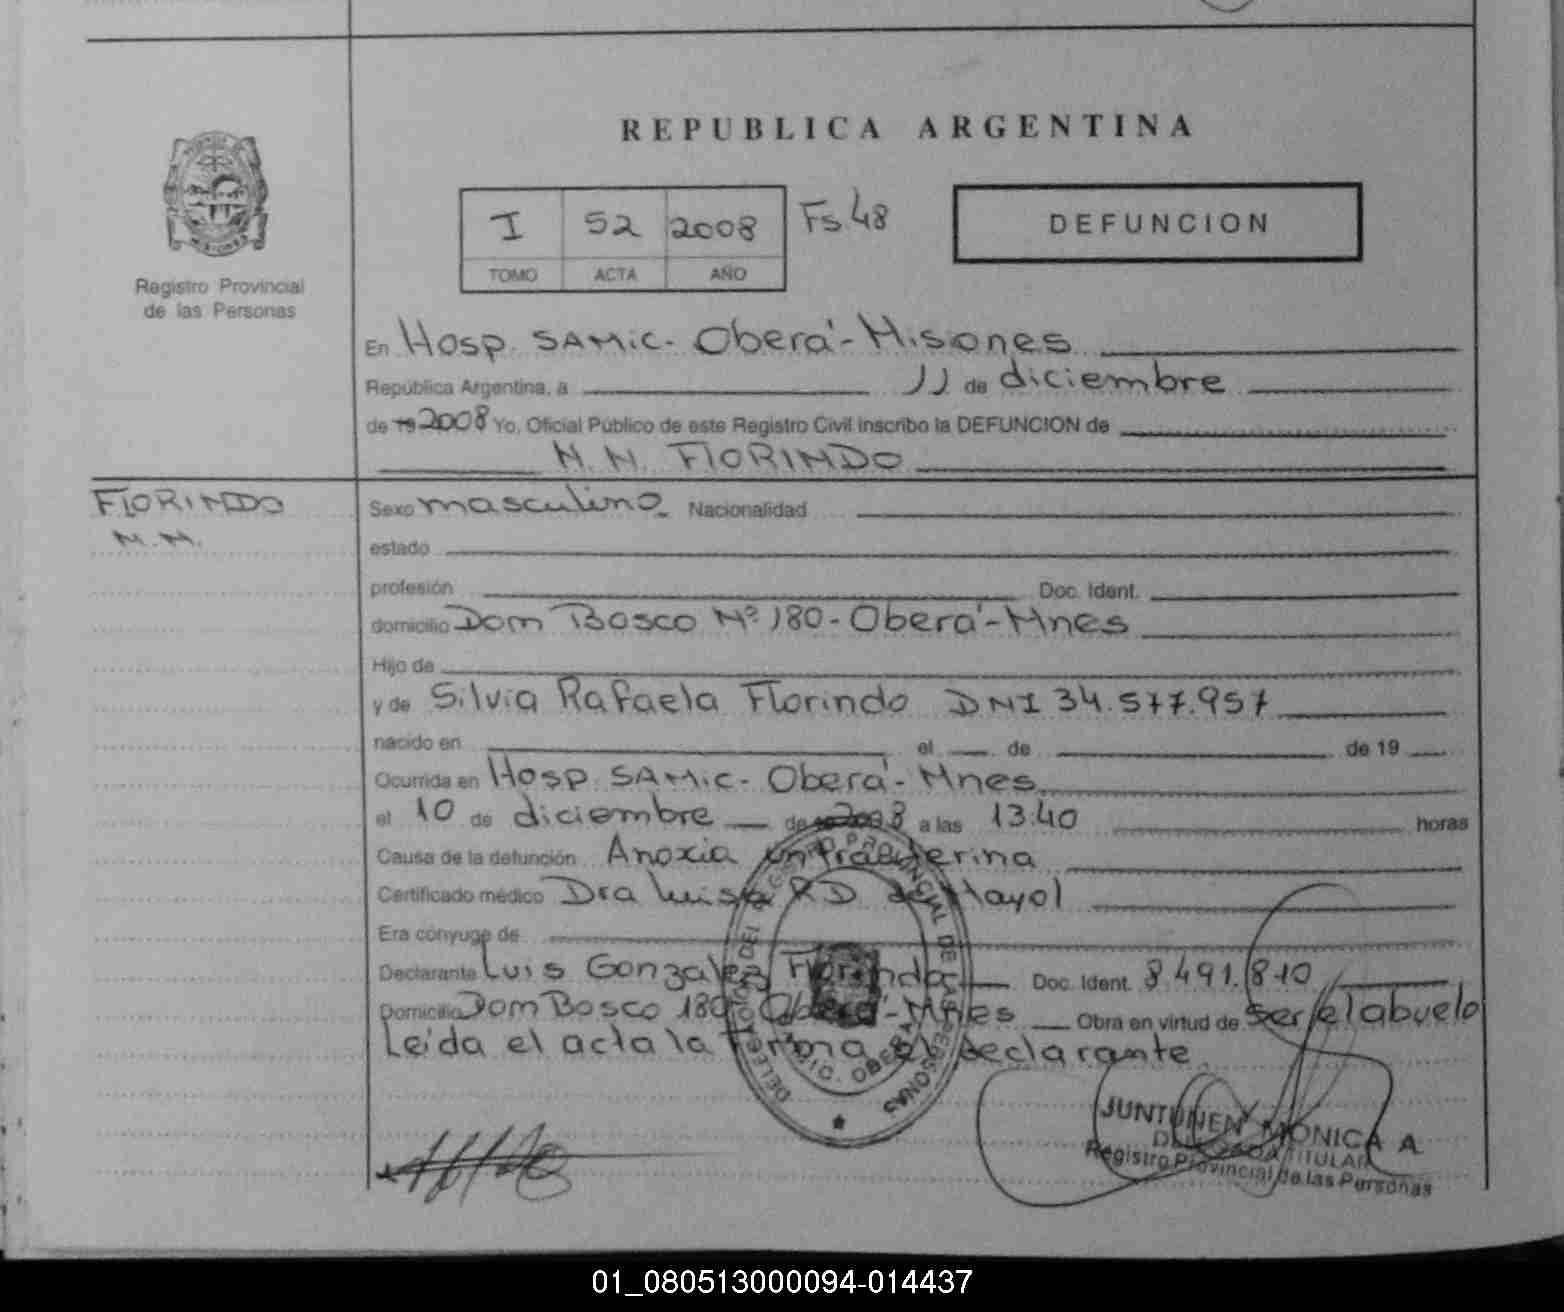 REPUBLICA ARGENTINA
I 52 2008 Fs. 48
TOMO ACTA AÑO
DEFUNCION
Registro Provincial
de las Personas
En Hosp. SAMIC - Oberá - Misiones
República Argentina, a 11 de diciembre
de 19 2008 Yo, Oficial Público de este Registro Civil inscribo la DEFUNCION de
N.N. FLORINDO
FLORINDO
N.N.
Sexo masculino Nacionalidad
estado
profesión Doc. Ident.
domicilio Dom Bosco Nº 180 - Oberá - Mnes
Hijo de
y de Silvia Rafaela Florindo DNI 34.577.957
nacido en el de de 19
Ocurrida en Hosp. SAMIC - Oberá - Mnes
el 10 de diciembre de 2008 a las 13:40 horas
Causa de la defunción Anoxia intrauterina
Certificado médico Dra Luisa RD de Mayol
Era cónyuge de
Declarante Luis Gonzalez Florindo Doc. Ident. 8.491.810
Domicilio Dom Bosco 180 Oberá - Mnes Obra en virtud de ser el abuelo
Leída el acta la firma el declarante
DELEGACION DEL REGISTRO PROVINCIAL DE LAS PERSONAS
OBERA
JUNTUNEN MONICA A
DELEGADA TITULAR
Registro Provincial de las Personas
01_080513000094-014437